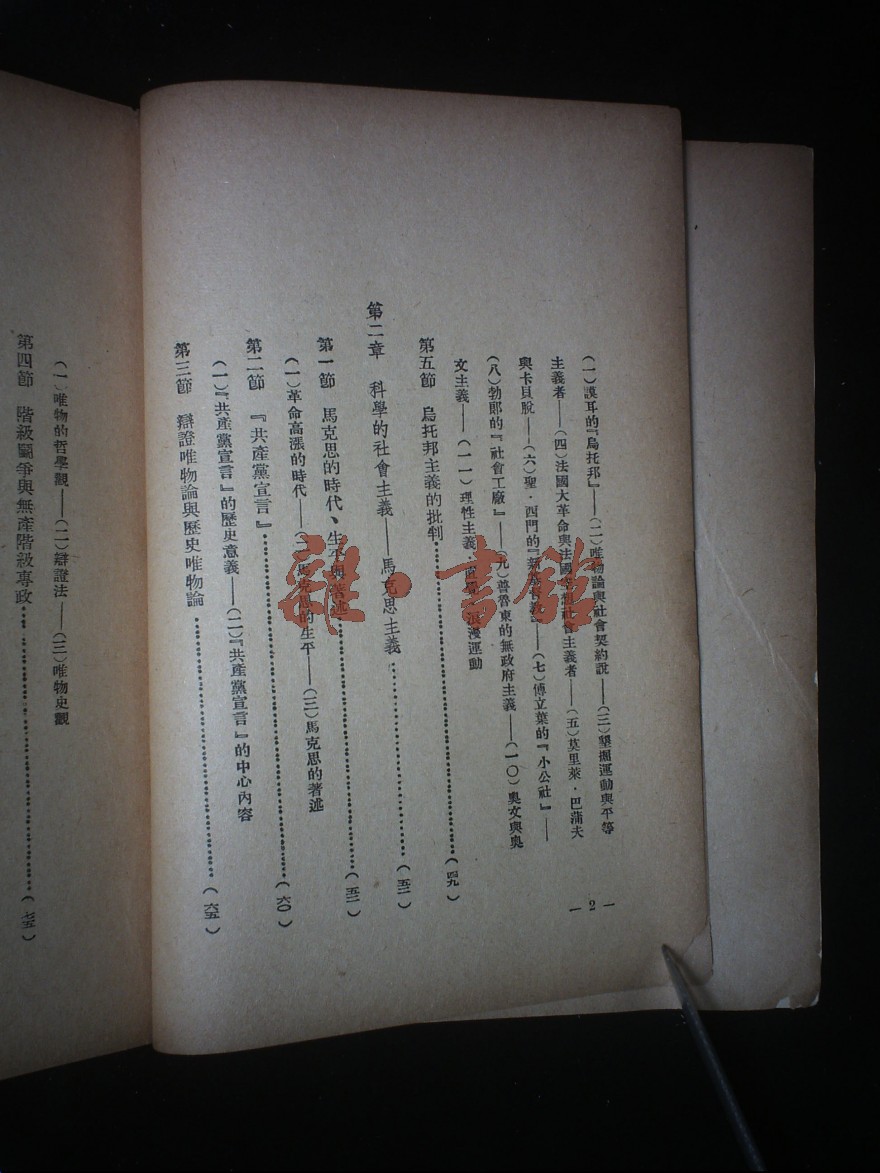 (一)謨耳的『烏托邦』——(二)唯物論與社會契約說——(三)墾掘運動與平等
主義者——(四)法國大革命與法國空想社會主義者——(五)莫里萊·巴蒲夫
與卡貝脫——(六)聖·西門的『新基督教』——(七)傅立葉的『小公社』——
(八)勃郎的『社會工廠』——(九)普魯東的無政府主義——(一〇)奧文與奧
文主義——(一一)理性主義· 浪漫運動
第五節 烏托邦主義的批判…………(四九)
第二章 科學的社會主義——馬克思主義…………(五二)
第一節 馬克思的時代、生平與著述…………(五二)
(一)革命高漲的時代——(二)馬克思的生平——(三)馬克思的著述
第二節 『共產黨宣言』…………(六〇)
(一)『共產黨宣言』的歷史意義——(二)『共產黨宣言』的中心內容
第三節 辯證唯物論與歷史唯物論…………(六五)
— 2 —
(一)唯物的哲學觀——(二)辯證法——(三)唯物史觀
第四節 階級鬭爭與無產階級專政…………(七五)
雜·書館